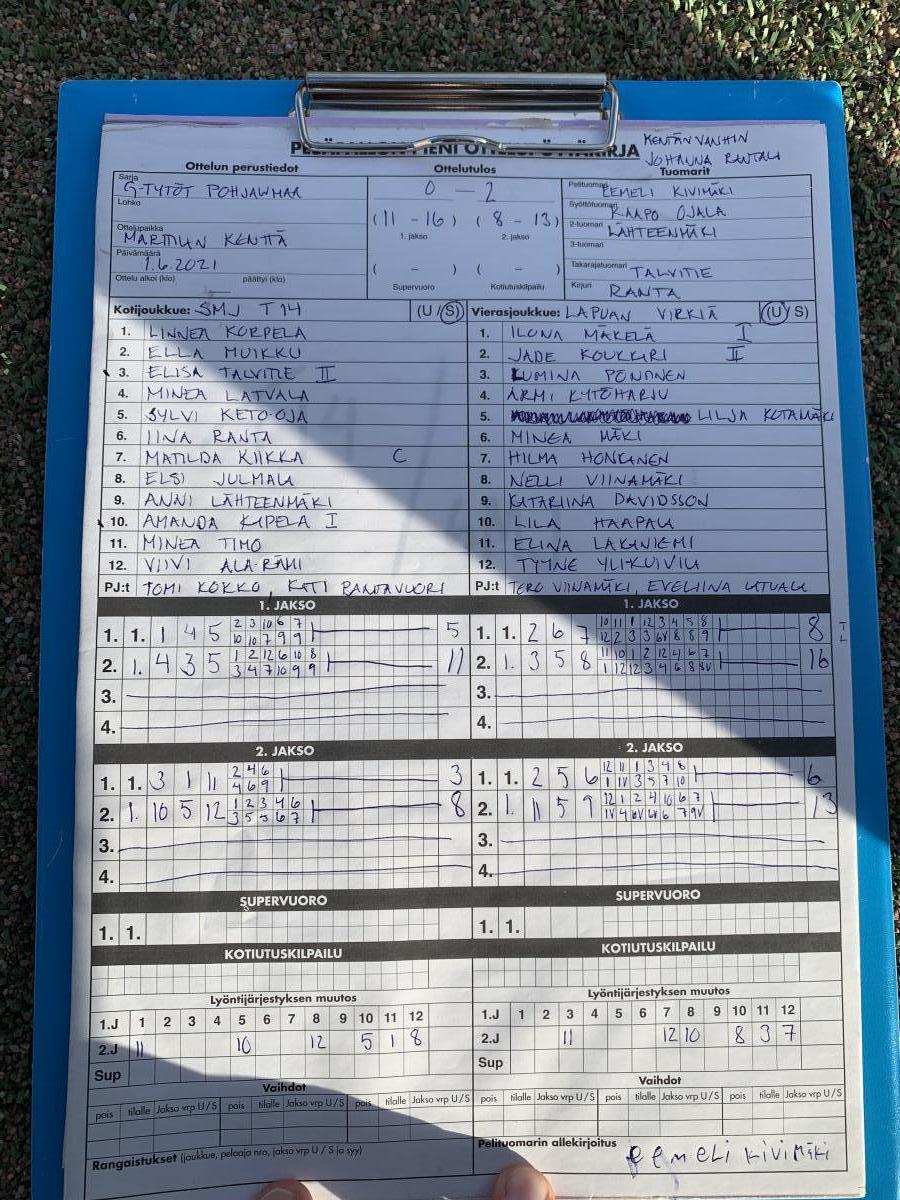 KENTÄNVANHIN
JOHANNA RANTALA
Ottelun perustiedot
Ottelutulos
Tuomarit
Sarja
G-TYTÖT POHJANMAA
Lohko
Ottelupaikka
MARTTILAN KENTTÄ
Päivämäärä
1.6.2021
Ottelu alkoi (klo) — päättyi (klo)
0 — 2
(11 - 16) (8 - 13)
1. jakso 2. jakso
( - ) ( - )
Supervuoro Kotiutuskilpailu
Pelituomari EEMELI KIVIMÄKI
Syöttötuomari KAAPO OJALA
2-tuomari LÄHTEENMÄKI
3-tuomari
Takarajatuomari TALVITIE
Kirjuri RANTA
Kotijoukkue: SMJ T14 (U/S)
1. LINNEA KORPELA
2. ELLA MUIKKU
3. ELISA TALVITIE II
4. MINEA LATVALA
5. SYLVI KETO-OJA
6. IINA RANTA
7. MATILDA KIIKKA C
8. ELSI JULMALA
9. ANNI LÄHTEENMÄKI
10. AMANDA I
11. MINEA TIMO
12. VIIVI ALA-RÄMI
PJ:t TOMI KOKKO, KATI RANTAVUORI
Vierasjoukkue: LAPUAN VIRKIÄ (U/S)
1. ILONA MÄKELÄ I
2. JADE KOUKKARI II
3. LUMINA PÖNTINEN
4. ARMI KYTÖHARJU
5. LILJA KOTAMÄKI
6. MINEA MÄKI
7. HILMA HONKANEN
8. NELLI VIINAMÄKI
9. KATARIINA DAVIDSSON
10. LILA HAAPALA
11. ELINA LAKANIEMI
12. TYYNE YLIKUIVILA
PJ:t TERO VIINAMÄKI, EVELIINA LATVALA
1. JAKSO
1. 1. 1 4 5 2 3 10 6 7 5
10 10 7 9 9
2. 1. 4 3 5 1 2 12 6 10 8 11
3 4 7 10 9 9
3.
4.
1. JAKSO
1. 1. 2 6 7 10 11 1 12 3 4 5 8 8
12 2 3 3 6V 8 8 9
2. 1. 3 5 8 11 10 1 2 12 4 6 7 16
1 12 12 3 4 6 8 8V
3.
4.
2. JAKSO
1. 1. 3 1 11 2 4 6 3
4 6 9
2. 1. 10 5 12 1 2 3 4 6 8
3 5 5 6 7
3.
4.
2. JAKSO
1. 1. 2 5 6 12 11 1 3 4 8 6
1 1V 3 5 7 10
2. 1. 11 5 9 12 1 2 4 10 6 7 13
1V 4 6V 6V 6 7 9V
3.
4.
SUPERVUORO
1. 1.
SUPERVUORO
1. 1.
KOTIUTUSKILPAILU
KOTIUTUSKILPAILU
Lyöntijärjestyksen muutos
1.J 1 2 3 4 5 6 7 8 9 10 11 12
2.J 11 10 12 5 1 8
Sup
Lyöntijärjestyksen muutos
1.J 1 2 3 4 5 6 7 8 9 10 11 12
2.J 11 12 10 8 3 7
Sup
Vaihdot
pois tilalle Jakso vrp U/S pois tilalle Jakso vrp U/S pois tilalle Jakso vrp U/S
Vaihdot
pois tilalle Jakso vrp U/S pois tilalle Jakso vrp U/S pois tilalle Jakso vrp U/S
Rangaistukset (joukkue, pelaaja nro, jakso vrp U / S ja syy)
Pelituomarin allekirjoitus
eemeli kivimäki